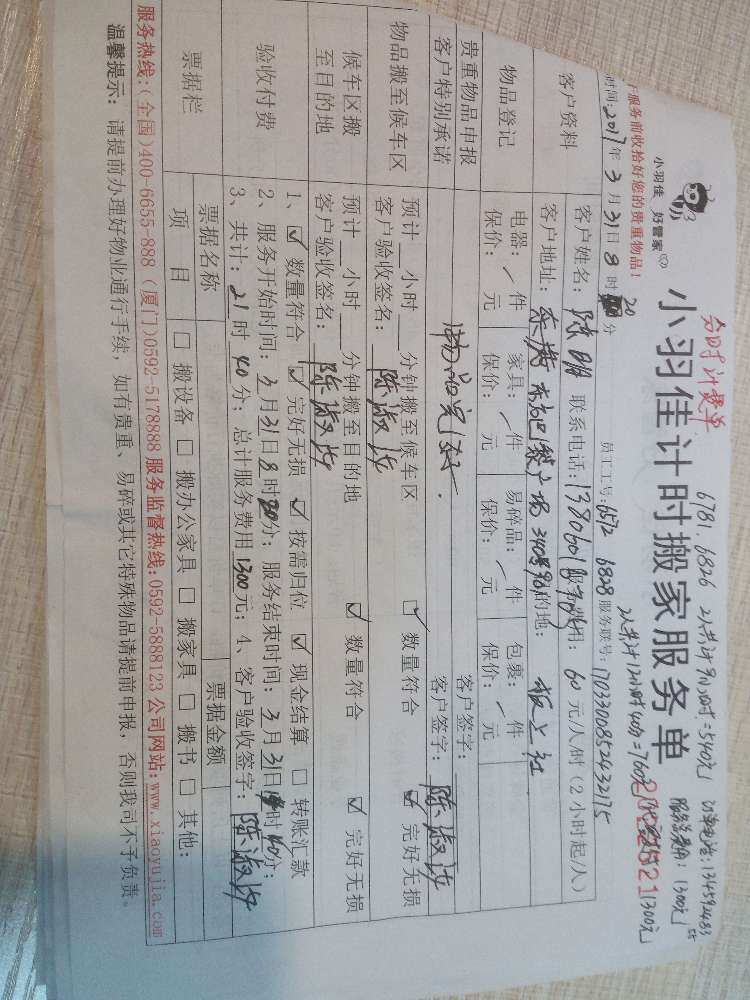 合时计费单
6781.6826 2人共计9小时=540元 订单电话:134592483
55
2人共计12小时40分=760元 服务总费用:1300元
小羽佳 好管家
小羽佳计时搬家服务单
2022521
1300元
服务前收拾好您的贵重物品!
时间:2017年3月31日8时20分
员工工号:6572 6828 服务联号:1703300852432175
客户资料
客户姓名: 联系电话: 服务费用:60元/人/时(2小时起/人)
客户地址: 目的地:板上社
物品登记
电器:/件 家具:/件 易碎品:/件 包裹:/件
保价:元 保价:元 保价:元 保价:元
贵重物品申报
客户签字:
客户特别承诺
物品完好.
客户签字:陈淑
物品搬至候车区
预计__小时__分钟搬至候车区 ☑数量符合 ☑完好无损
客户验收签名:陈淑
候车区搬至目的地
预计__小时__分钟搬至目的地 ☑数量符合 ☑完好无损
客户验收签名:陈淑
验收付费
1、☑数量符合 ☑完好无损 ☑按需归位 ☑现金结算 □转账汇款
2、服务开始时间:3月31日8时20分;服务结束时间:3月31日时40分;
3、共计:21时40分;总计服务费用1300元;4、客户验收签字:陈淑
票据栏
票据名称 票据金额
项目 □搬设备 □搬办公家具 □搬家具 □搬书 □其他:
服务热线:(全国)400-6655-888 (厦门)0592-5178888 服务监督热线:0592-5888123 公司网站:www.xiaoyujia.com
温馨提示: 请提前办理好物业通行手续,如有贵重、易碎或其它特殊物品请提前申报,否则我司不予负责。